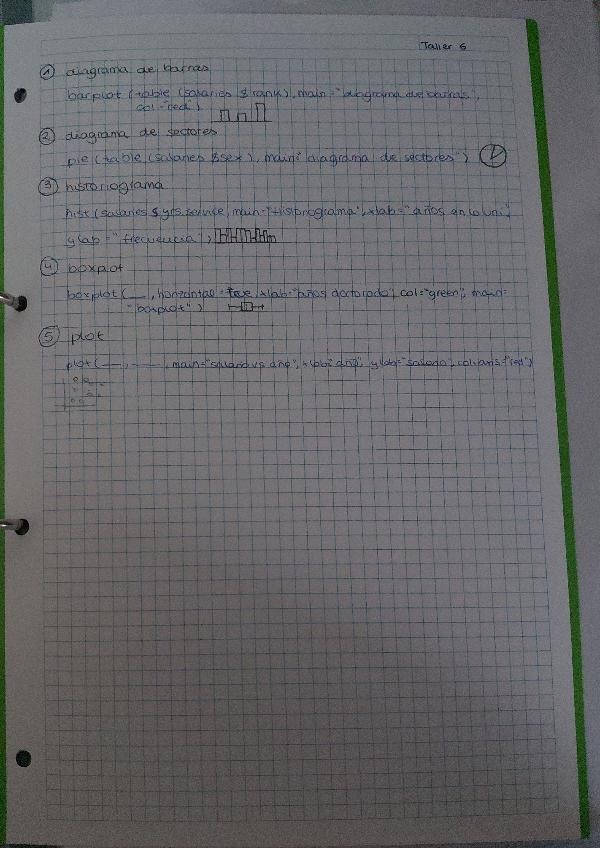 Taller 6
① diagrama de barras
barplot (table (salaries $ rank), main="diagrama de barras",
col="red")
② diagrama de sectores
pie (table (salaries $ sex), main="diagrama de sectores")
③ historiograma
hist (salaries $ yrs.service, main="Historiograma", xlab="años en la uni",
ylab="frecuencia")
④ boxplot
boxplot (__, horizontal=true, xlab="años doctorado", col="green", main=
"boxplot")
⑤ plot
plot (__, __, main="salario vs año", xlab="año", ylab="salado", col.axis="red")